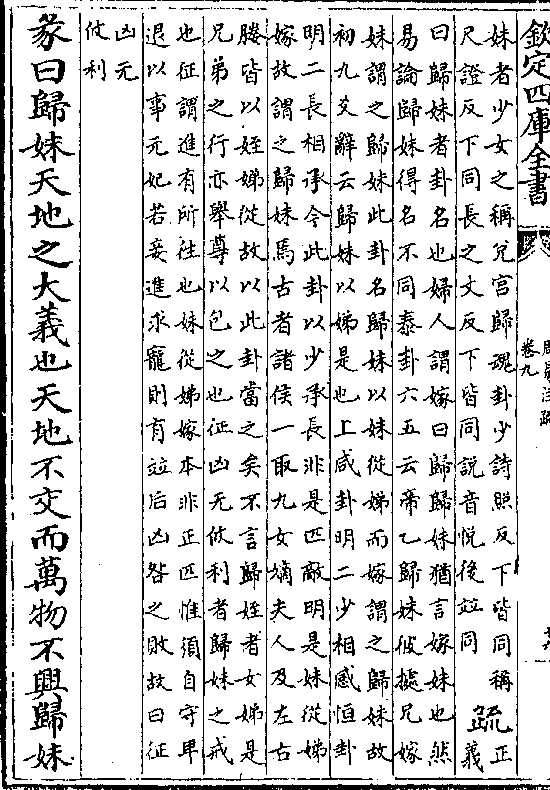 欽定四庫全書
卷九
妹者少女之稱兌宮歸魂卦少詩照反下皆同稱
尺證反下同長之丈反下皆同說音悅後竝同
疏
正
義
曰歸妹者卦名也婦人謂嫁曰歸歸妹猶言嫁妹也然
易論歸妹得名不同泰卦六五云帝乙歸妹彼據兄嫁
妹謂之歸妹此卦名歸妹以妹從娣而嫁謂之歸妹故
初九爻辭云歸妹以娣是也上咸卦明二少相感恒卦
明二長相承今此卦以少承長非是匹敵明是妹從娣
嫁故謂之歸妹焉古者諸侯一取九女嫡夫人及左右
媵皆以姪娣從故以此卦當之矣不言歸姪者女娣是
兄弟之行亦舉尊以包之也征凶无攸利者歸妹之戒
也征謂進有所往也妹從娣嫁本非正匹惟須自守卑
退以事元妃若妾進求寵則有竝后凶咎之敗故曰征
凶无
攸利
彖曰歸妹天地之大義也天地不交而萬物不興歸妹